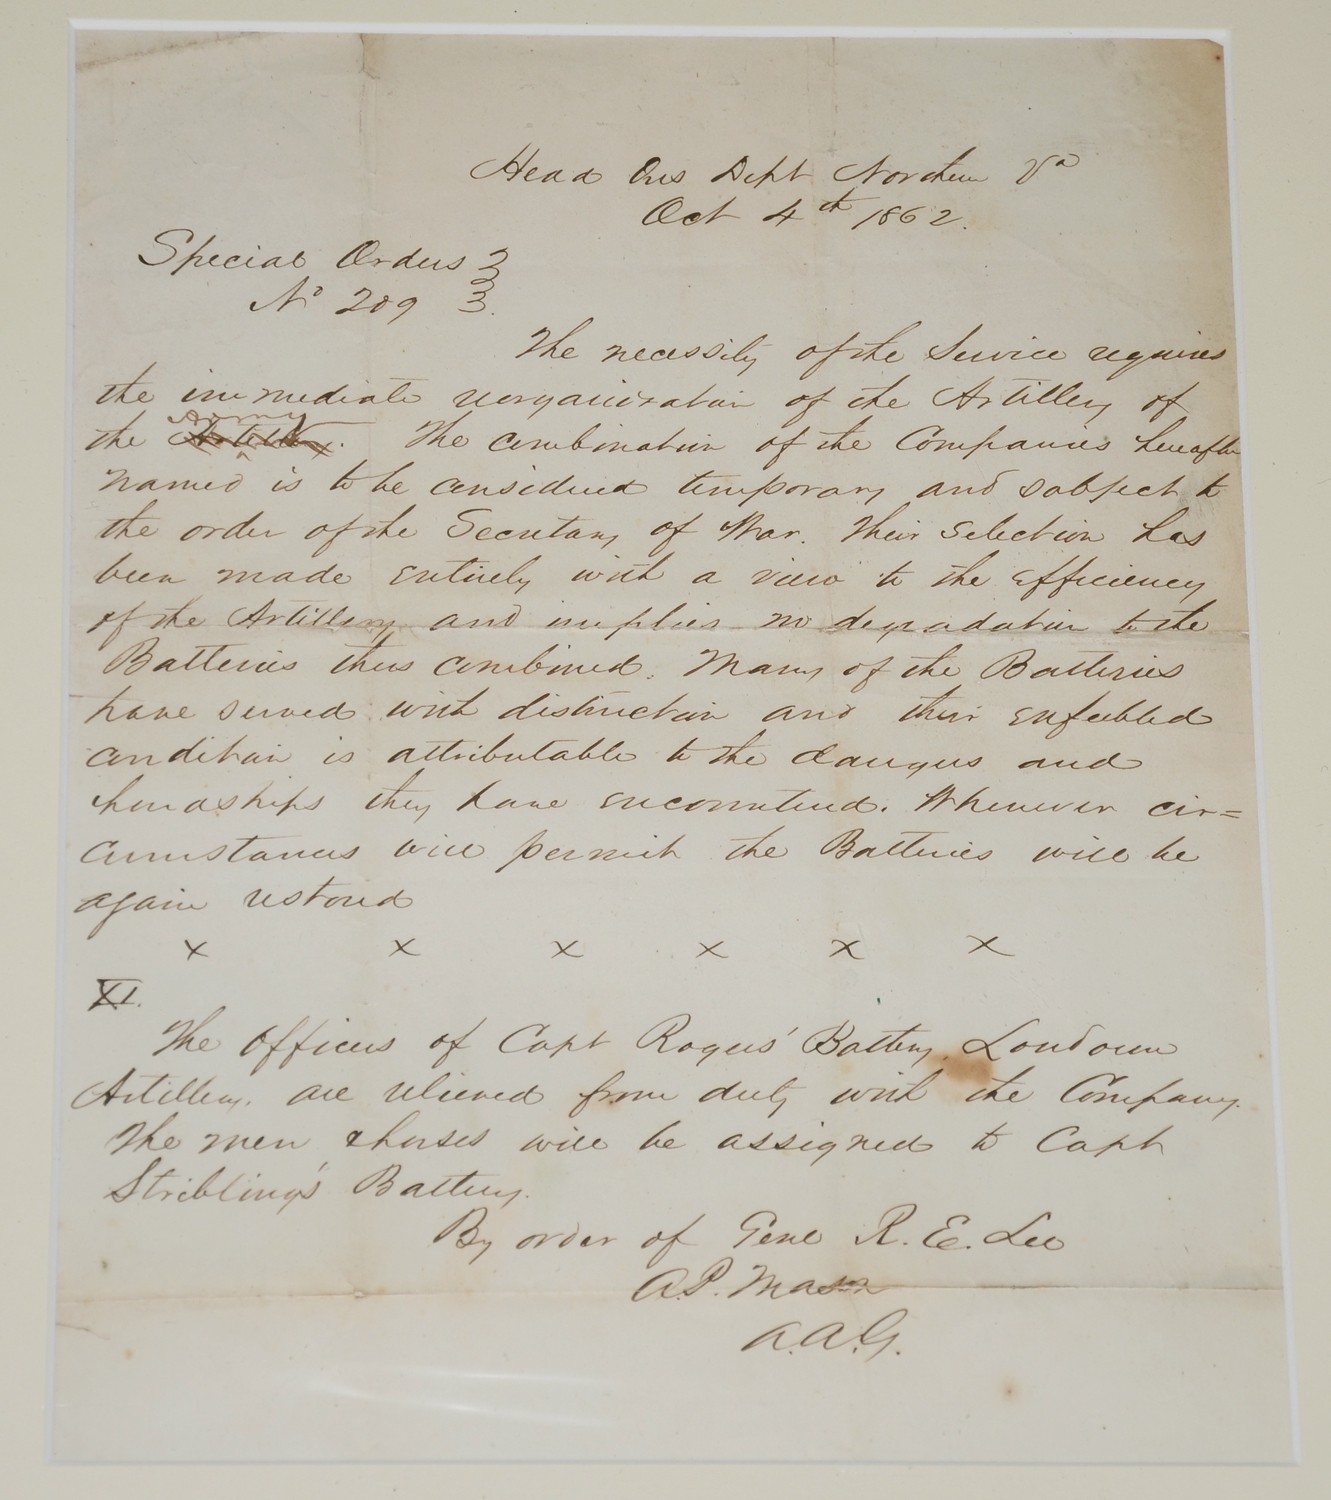 Head Qrs Dept Northern Va
Oct 4th 1862.
Special Orders }
No 209 }
The necessity of the Service requires
the immediate reorganization of the Artillery of
the Army Artillery. The combination of the Companies hereafter
named is to be considered temporary and subject to
the order of the Secretary of War. Their selection has
been made entirely with a view to the efficiency
of the Artillery and implies no degradation to the
Batteries thus combined. Many of the Batteries
have served with distinction and their enfeebled
condition is attributable to the dangers and
hardships they have encountered. Whenever cir=
cumstances will permit the Batteries will be
again restored
x x x x x x
XI.
The Officers of Capt Rogers' Battery, Loudoun
Artillery, are relieved from duty with the Company.
The men & horses will be assigned to Capt
Stribling's Battery.
By order of Genl R. E. Lee
A.P. Mason
A.A.G.